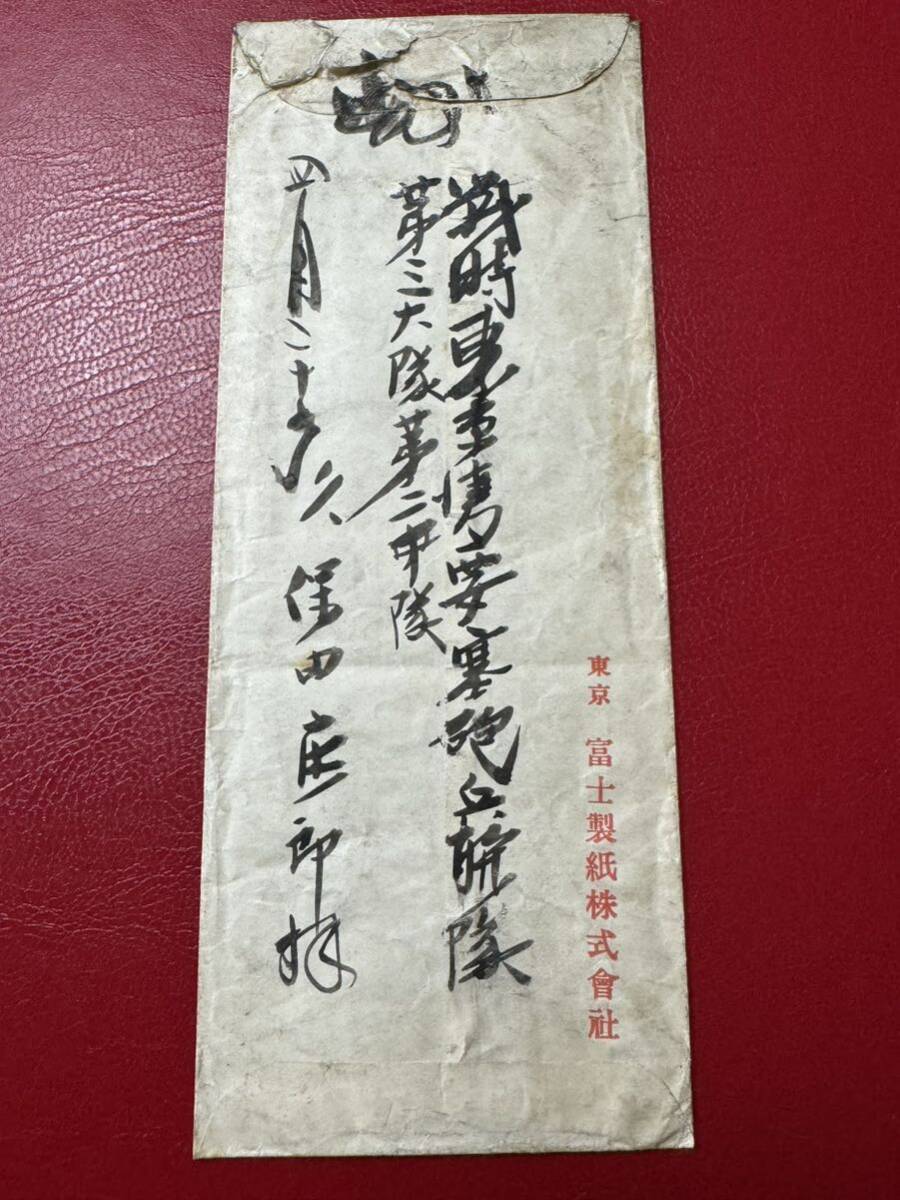 東京 富士製紙株式會社
戦時東京湾要塞砲兵聯隊
第三大隊第二中隊
四月二十
久保田庄郎拝